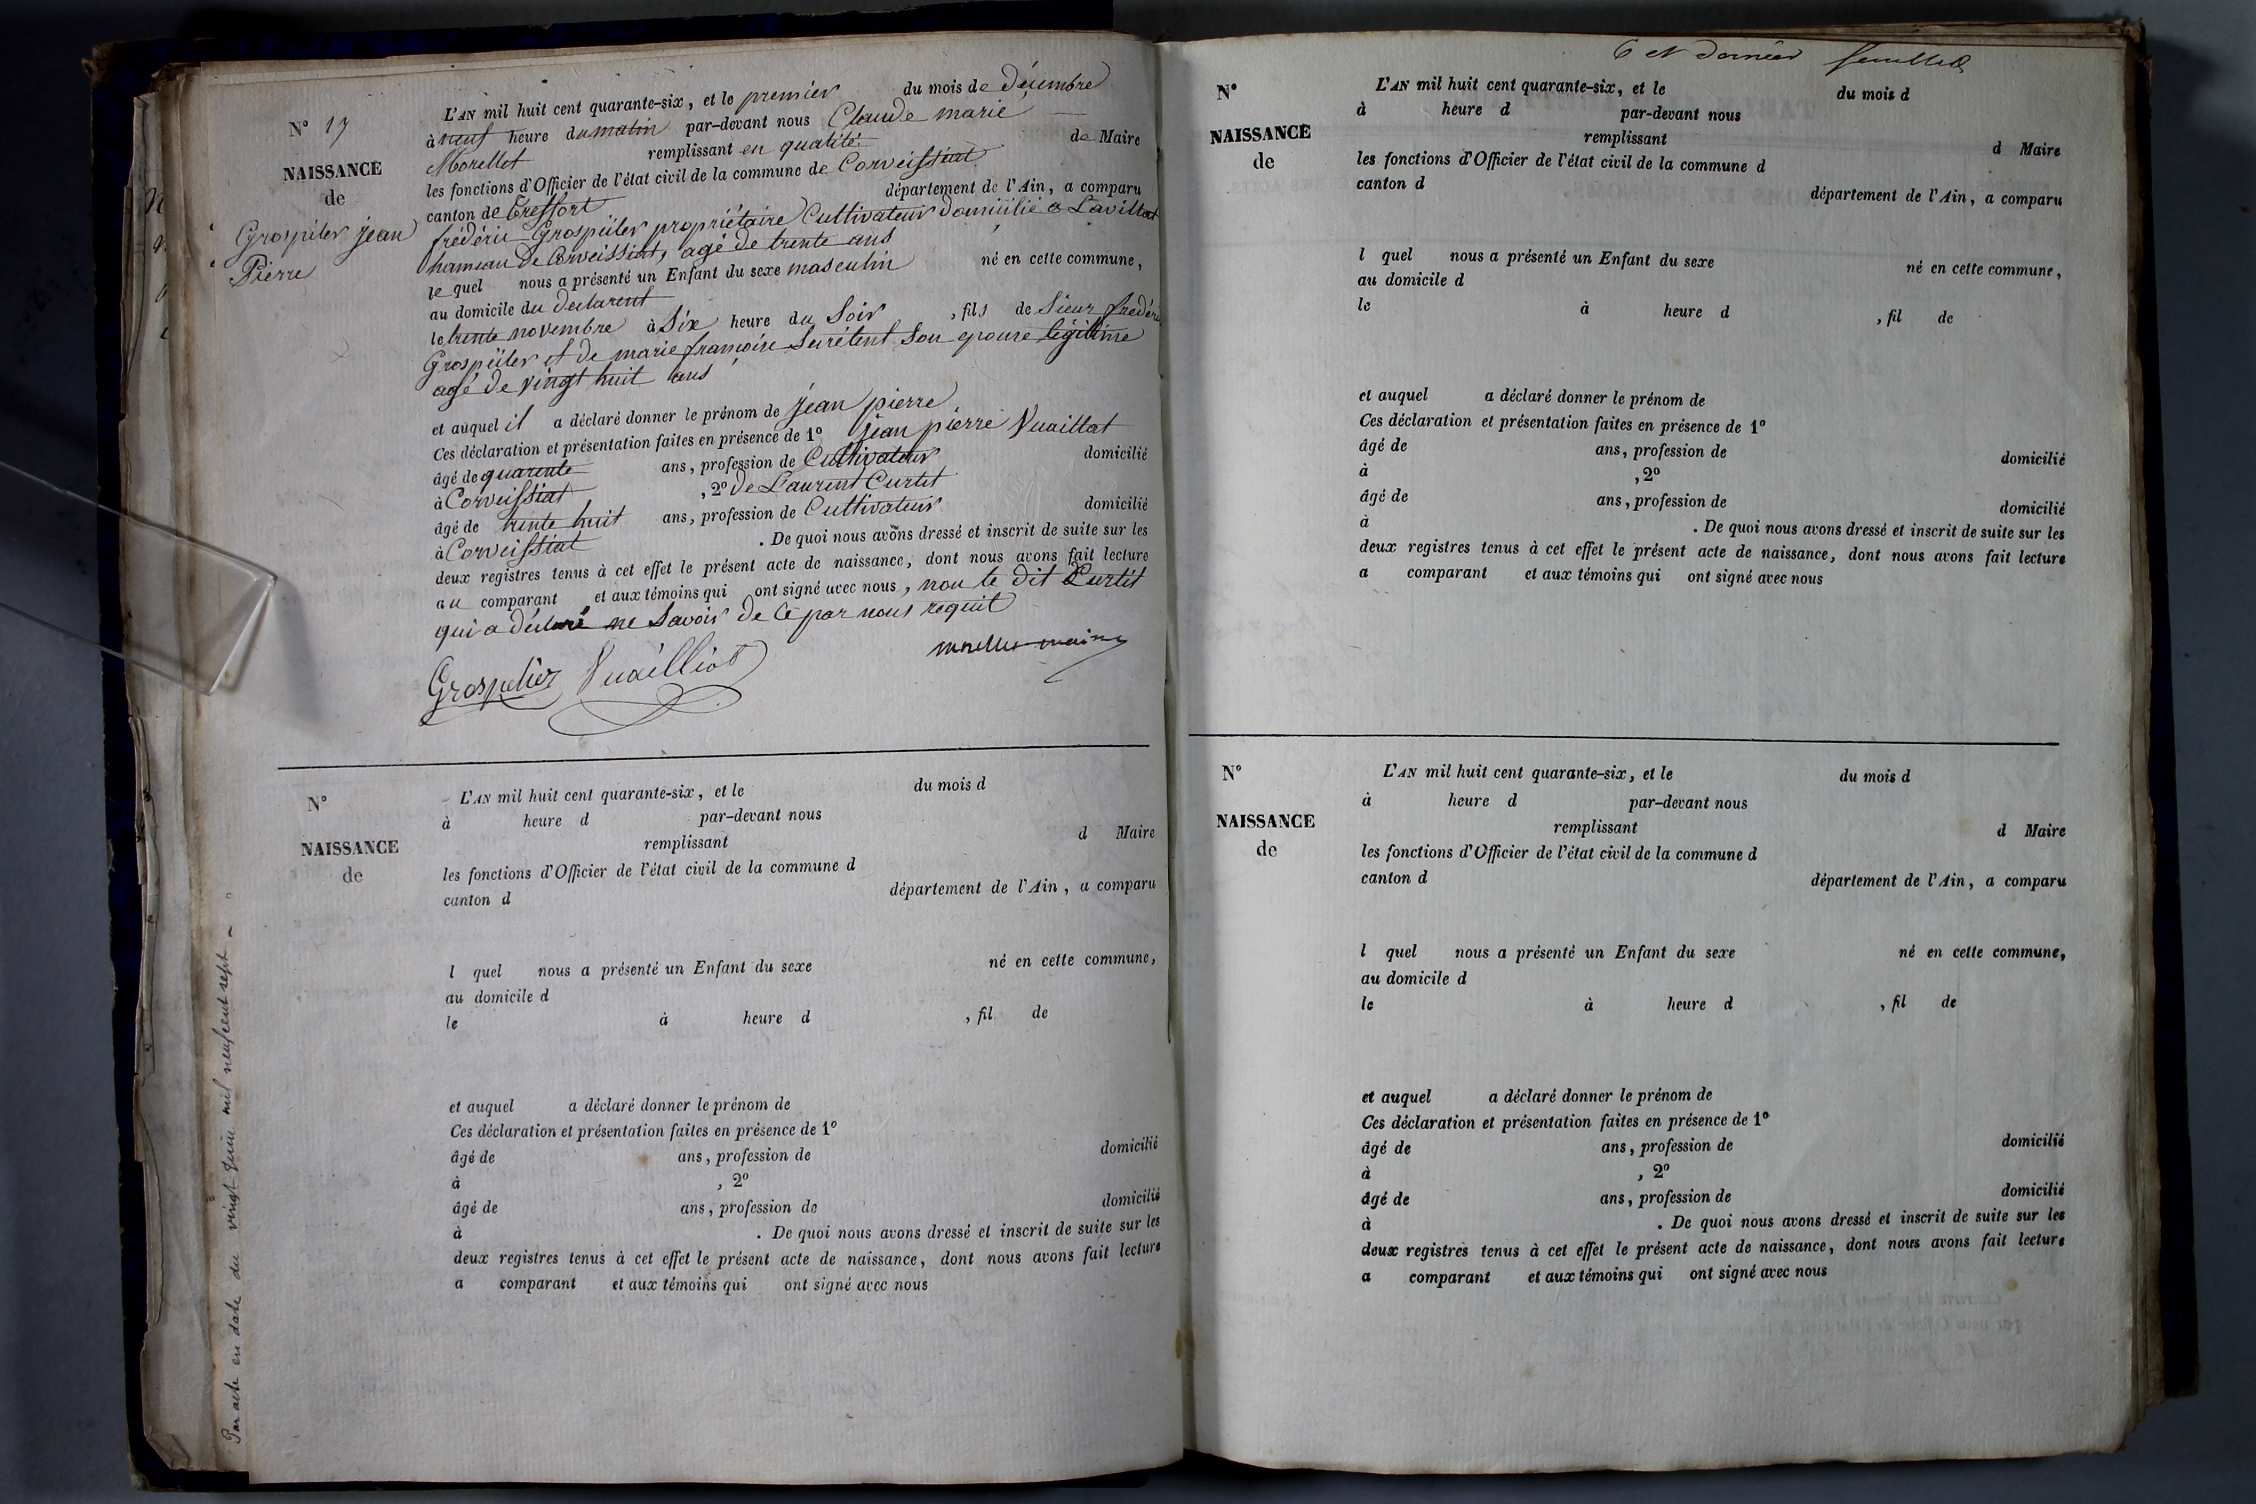 N° 17
NAISSANCE
de
Grospelier jean
Pierre
L'AN mil huit cent quarante-six, et le premier du mois de décembre
à neuf heure du matin par-devant nous Claude marie
Morellet remplissant en qualité de Maire
les fonctions d'Officier de l'état civil de la commune de Corveissiat
canton de treffort département de l'Ain, a comparu
frédéric Grospelier propriétaire Cultivateur domicilié a
hameau de Corveissiat, agé de trente ans
le quel nous a présenté un Enfant du sexe masculin né en cette commune,
au domicile du declarent
le trente novembre à Six heure du Soir, fils de Sieur frédéric
Grospelier et de marie françoise Son epouse légitime
agé de vingt huit ans
et auquel il a déclaré donner le prénom de jean pierre
Ces déclaration et présentation faites en présence de 1° jean pierre Vuaillat
âgé de quarente ans, profession de Cultivateur domicilié
à Corveissiat, 2° de Laurent Curtit
âgé de trente huit ans, profession de Cultivateur domicilié
à Corveissiat. De quoi nous avons dressé et inscrit de suite sur les
deux registres tenus à cet effet le présent acte de naissance, dont nous avons fait lecture
au comparant et aux témoins qui ont signé avec nous, non le dit Curtit
qui a déclaré ne Savoir de ce par nous requit
Grospelier Vuailliat morellet maire
N°
NAISSANCE
de
L'AN mil huit cent quarante-six, et le du mois d
à heure d par-devant nous
remplissant d Maire
les fonctions d'Officier de l'état civil de la commune d
canton d département de l'Ain, a comparu
l quel nous a présenté un Enfant du sexe né en cette commune,
au domicile d
le à heure d , fil de
et auquel a déclaré donner le prénom de
Ces déclaration et présentation faites en présence de 1°
âgé de ans, profession de domicilié
à , 2°
âgé de ans, profession de domicilié
à . De quoi nous avons dressé et inscrit de suite sur les
deux registres tenus à cet effet le présent acte de naissance, dont nous avons fait lecture
a comparant et aux témoins qui ont signé avec nous
Par acte en date du vingt juin mil neuf cent sept
6 et dernier feuillet
N°
NAISSANCE
de
L'AN mil huit cent quarante-six, et le du mois d
à heure d par-devant nous
remplissant d Maire
les fonctions d'Officier de l'état civil de la commune d
canton d département de l'Ain, a comparu
l quel nous a présenté un Enfant du sexe né en cette commune,
au domicile d
le à heure d , fil de
et auquel a déclaré donner le prénom de
Ces déclaration et présentation faites en présence de 1°
âgé de ans, profession de domicilié
à , 2°
âgé de ans, profession de domicilié
à . De quoi nous avons dressé et inscrit de suite sur les
deux registres tenus à cet effet le présent acte de naissance, dont nous avons fait lecture
a comparant et aux témoins qui ont signé avec nous
N°
NAISSANCE
de
L'AN mil huit cent quarante-six, et le du mois d
à heure d par-devant nous
remplissant d Maire
les fonctions d'Officier de l'état civil de la commune d
canton d département de l'Ain, a comparu
l quel nous a présenté un Enfant du sexe né en cette commune,
au domicile d
le à heure d , fil de
et auquel a déclaré donner le prénom de
Ces déclaration et présentation faites en présence de 1°
âgé de ans, profession de domicilié
à , 2°
âgé de ans, profession de domicilié
à . De quoi nous avons dressé et inscrit de suite sur les
deux registres tenus à cet effet le présent acte de naissance, dont nous avons fait lecture
a comparant et aux témoins qui ont signé avec nous